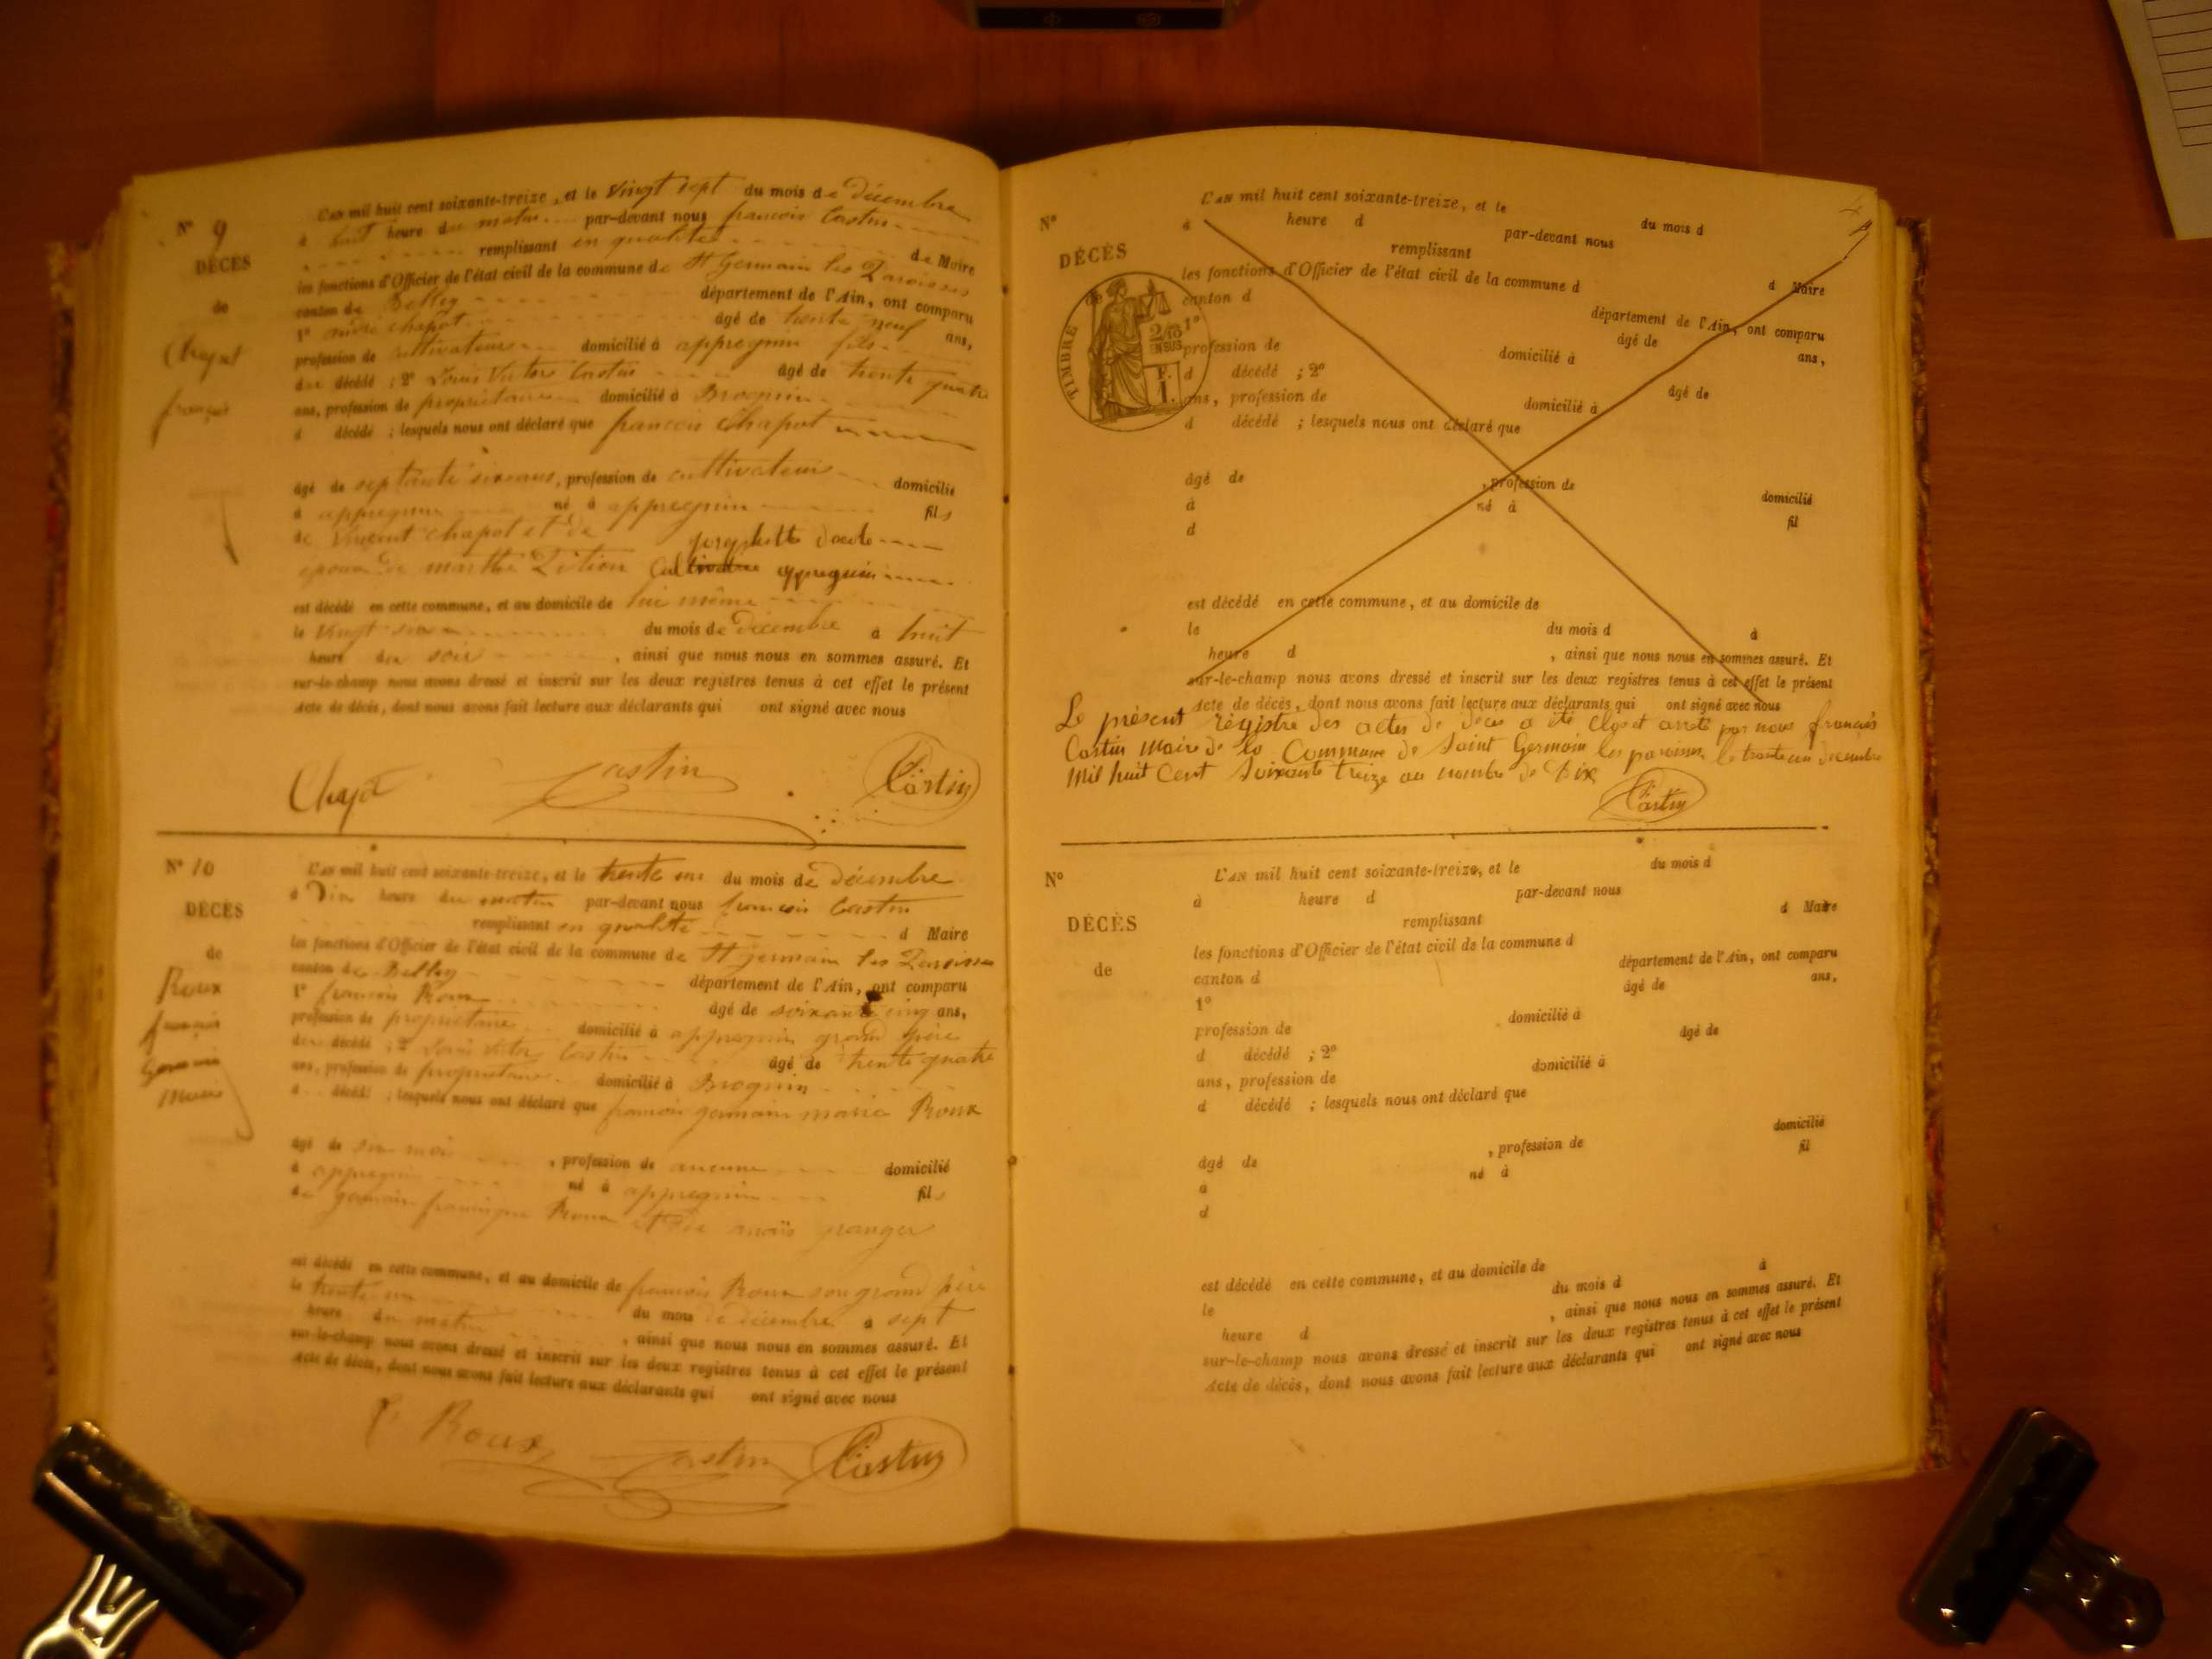 N° 9
DÉCÈS
de
Chapot
françois
L'AN mil huit cent soixante-treize, et le Vingt sept du mois de décembre
à huit heure du matin par-devant nous françois Castin
remplissant en qualité de Maire
les fonctions d'Officier de l'état civil de la commune de St Germain les Paroisses
canton de Belley département de l'Ain, ont comparu
1° andré chapot âgé de trente neuf ans,
profession de cultivateur domicilié à appregnin fils
du décédé ; 2° Louis Victor Castin âgé de trente quatre
ans, profession de propriétaire domicilié à Brognin
d décédé ; lesquels nous ont déclaré que françois Chapot
âgé de septante six ans, profession de cultivateur domicilié
à appregnin né à appregnin fils
de Vincent chapot et de josephette
epoux de marthe appregnin
est décédé en cette commune, et au domicile de lui même
le Vingt six du mois de décembre à huit
heure du soir , ainsi que nous nous en sommes assuré. Et
sur-le-champ nous avons dressé et inscrit sur les deux registres tenus à cet effet le présent
Acte de décès, dont nous avons fait lecture aux déclarants qui ont signé avec nous
Chapot Castin Castin
N° 10
DÉCÈS
de
Roux
françois
Germain
Marie
L'AN mil huit cent soixante-treize, et le trente un du mois de décembre
à Dix heure du matin par-devant nous françois Castin
remplissant en qualité d Maire
les fonctions d'Officier de l'état civil de la commune de St germain les Paroisses
canton de Belley département de l'Ain, ont comparu
1° françois Roux âgé de soixante cinq ans,
profession de propriétaire domicilié à appregnin grand père
du décédé ; 2° Louis Victor Castin âgé de trente quatre
ans, profession de propriétaire domicilié à Brognin
d décédé ; lesquels nous ont déclaré que françois germain marie Roux
âgé de six mois , profession de aucune domicilié
à appregnin né à appregnin fils
de germain françois Roux et de anaïs granger
est décédé en cette commune, et au domicile de françois Roux son grand père
le trente un du mois de décembre à sept
heure du matin , ainsi que nous nous en sommes assuré. Et
sur-le-champ nous avons dressé et inscrit sur les deux registres tenus à cet effet le présent
Acte de décès, dont nous avons fait lecture aux déclarants qui ont signé avec nous
f. Roux Castin Castin
N°
DÉCÈS
de
TIMBRE
2/10
EN SUS
F.
1.
L'AN mil huit cent soixante-treize, et le du mois d
à heure d par-devant nous
remplissant d Maire
les fonctions d'Officier de l'état civil de la commune d
canton d département de l'Ain, ont comparu
1° âgé de ans,
profession de domicilié à
d décédé ; 2° âgé de
ans, profession de domicilié à
d décédé ; lesquels nous ont déclaré que
âgé de , profession de domicilié
à né à fil
d
est décédé en cette commune, et au domicile de
le du mois d à
heure d , ainsi que nous nous en sommes assuré. Et
sur-le-champ nous avons dressé et inscrit sur les deux registres tenus à cet effet le présent
Acte de décès, dont nous avons fait lecture aux déclarants qui ont signé avec nous
Le présent régistre des actes de décès a été clos et arreté par nous françois
Castin Maire de la Commune de Saint Germain les paroisses le trente un decembre
Mil huit Cent Soixante treize au nombre de Dix
Castin
N°
DÉCÈS
de
L'AN mil huit cent soixante-treize, et le du mois d
à heure d par-devant nous
remplissant d Maire
les fonctions d'Officier de l'état civil de la commune d
canton d département de l'Ain, ont comparu
1° âgé de ans,
profession de domicilié à
d décédé ; 2° âgé de
ans, profession de domicilié à
d décédé ; lesquels nous ont déclaré que
âgé de , profession de domicilié
à né à fil
d
est décédé en cette commune, et au domicile de
le du mois d à
heure d , ainsi que nous nous en sommes assuré. Et
sur-le-champ nous avons dressé et inscrit sur les deux registres tenus à cet effet le présent
Acte de décès, dont nous avons fait lecture aux déclarants qui ont signé avec nous